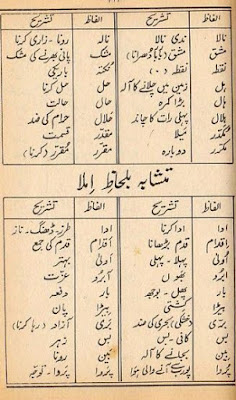 الفاظ تشریح الفاظ تشریح
نالا ندی نالا نالہ رونا - زاری کرنا
مشق مشق (بار بار دُہرانا) مشک پانی بھرنے کی مشک
نقطہ نقطہ (۰) نکتہ باریکی
ہل زمین میں چلانے کا آلہ حل حل
ہال بڑا کمرہ حال حالت
ہلال پہلی رات کا چاند حلال حرام کی ضد
مکدّر میلا مقدّر قسمت
مکرّر دوبارہ مقرّر مقرّر (کرنا)
متشابہ بلحاظِ اِملا
الفاظ تشریح الفاظ تشریح
ادا ادا کرنا ادا طرز - ڈھنگ - ناز
اِقدام قدم بڑھانا اَقدام قدم کی جمع
اُولیٰ پہلا - پہلی اَولیٰ بہتر
ابرو بھوں آبرو عزت
بار پھل - بوجھ بار دفعہ
بیڑا کشتی بیڑا پان
برّی خشکی (بحری کی ضد) بَری آزاد (رہا کرنا)
بس کافی بس زہر
بین بجانے کا آلہ بین رونا
پُروا پورب سے آنے والی ہوا پروا پروا - توجہ